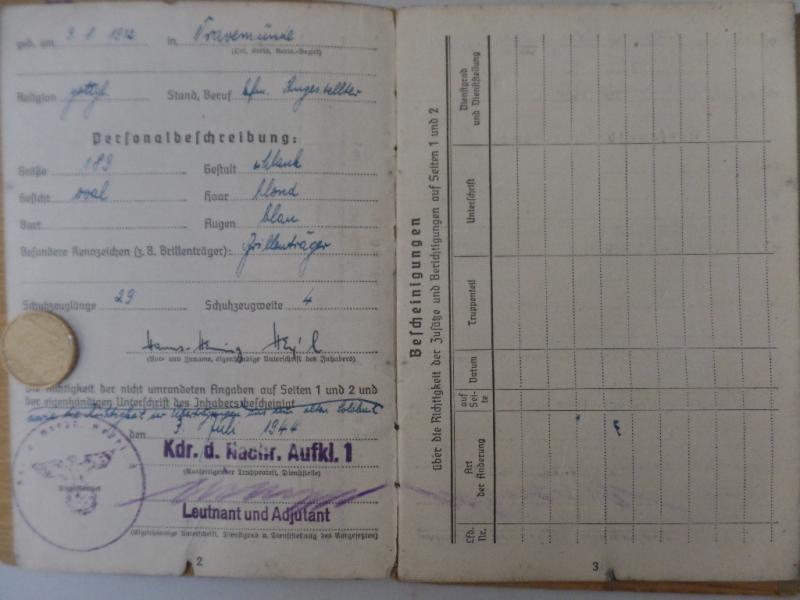 geb. am 9.8.1912 in Travemünde
(Ort, Kreis, Verw.-Bezirk)
Religion gottgl. Stand, Beruf kfm. Angestellter
Personalbeschreibung:
Größe 189 Gestalt schlank
Gesicht oval Haar blond
Bart Augen blau
Besondere Kennzeichen (z. B. Brillenträger): Brillenträger
Schuhzeuglänge 29 Schuhzeugweite 4
Hans-Henning
(Vor- und Zuname, eigenhändige Unterschrift des Inhabers)
Die Richtigkeit der nicht umrandeten Angaben auf Seiten 1 und 2 und
der eigenhändigen Unterschrift des Inhabers bescheinigt
sowie die Richtigkeit der Übertragungen aus dem alten Soldbuch
den 3. Juli 1944
Kdr. d. Nachr. Aufkl. 1
(Ausfertigender Truppenteil, Dienststelle)
Leutnant und Adjutant
(Eigenhändige Unterschrift, Dienstgrad u. Dienststellung des Vorgesetzten)
2
Bescheinigungen
über die Richtigkeit der Zusätze und Berichtigungen auf Seiten 1 und 2
Lfd. Nr.
Art der Änderung
auf Sei- te
Datum
Truppenteil
Unterschrift
Dienstgrad und Dienststellung
3